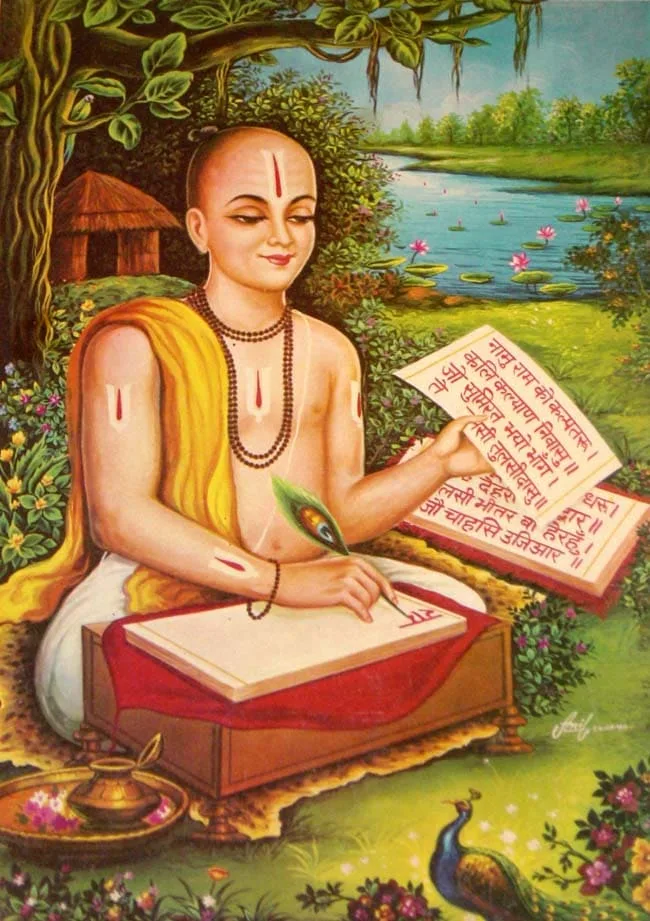 नामु राम को कल्पतरू।
कलि कल्याण निवासु॥
जौ सुमिरत भयो भाँग।
तुलसीदासु॥
धरू।
लसी भीतर बाहेरहुँ।
जौ चाहसि उजिआर॥
राम